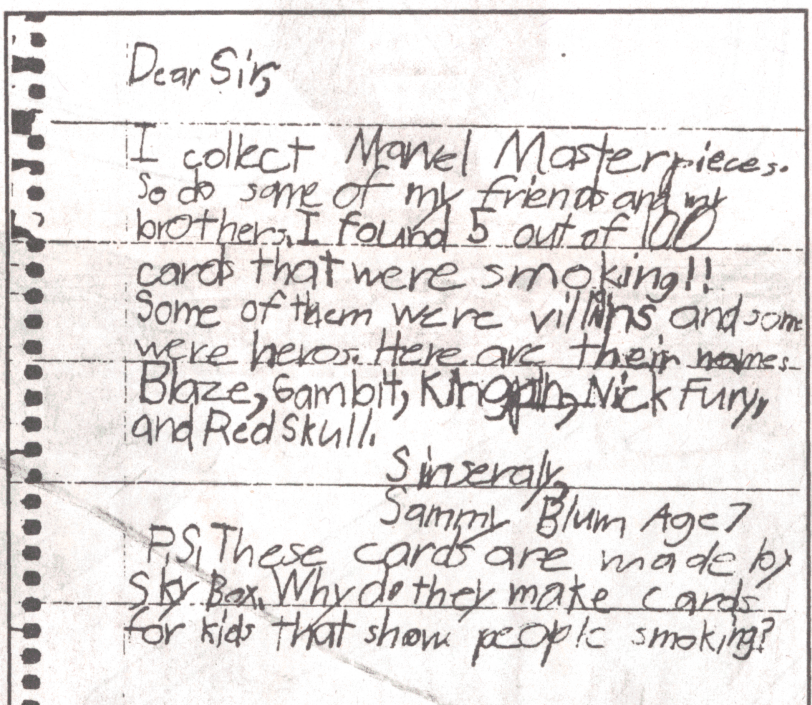 Dear Sir,
I collect Marvel Masterpieces.
So do some of my friends and my
brothers. I found 5 out of 100
cards that were smoking!!
Some of them were villins and some
were heros. Here are their names
Blaze, Gambit, Kingpin, Nick Fury,
and Red Skull.
Sinseraly,
Sammy Blum Age 7
P.S. These cards are made by
Sky Box. Why do they make cards
for kids that show people smoking?